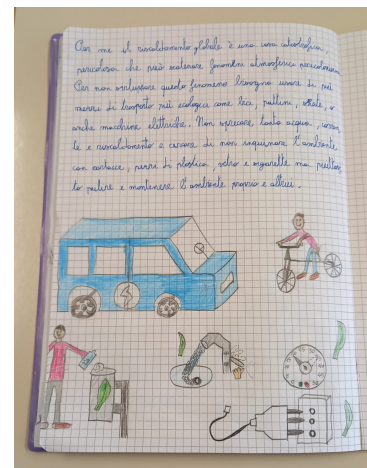 Per me il riscaldamento globale è una cosa catastrofica,
pericolosa che può scatenare fenomeni atmosferici pericolosissimi.
Per non sviluppare questo fenomeno bisogna usare di più
mezzi di trasporto più ecologici come bici, pattini, skate, o
anche macchine elettriche. Non sprecare tanta acqua, corren
te e riscaldamento e cercare di non inquinare l'ambiente
con cartacce, pezzi di plastica, vetro e sigarette ma piuttos
to pulire e mantenere l'ambiente proprio e altrui.